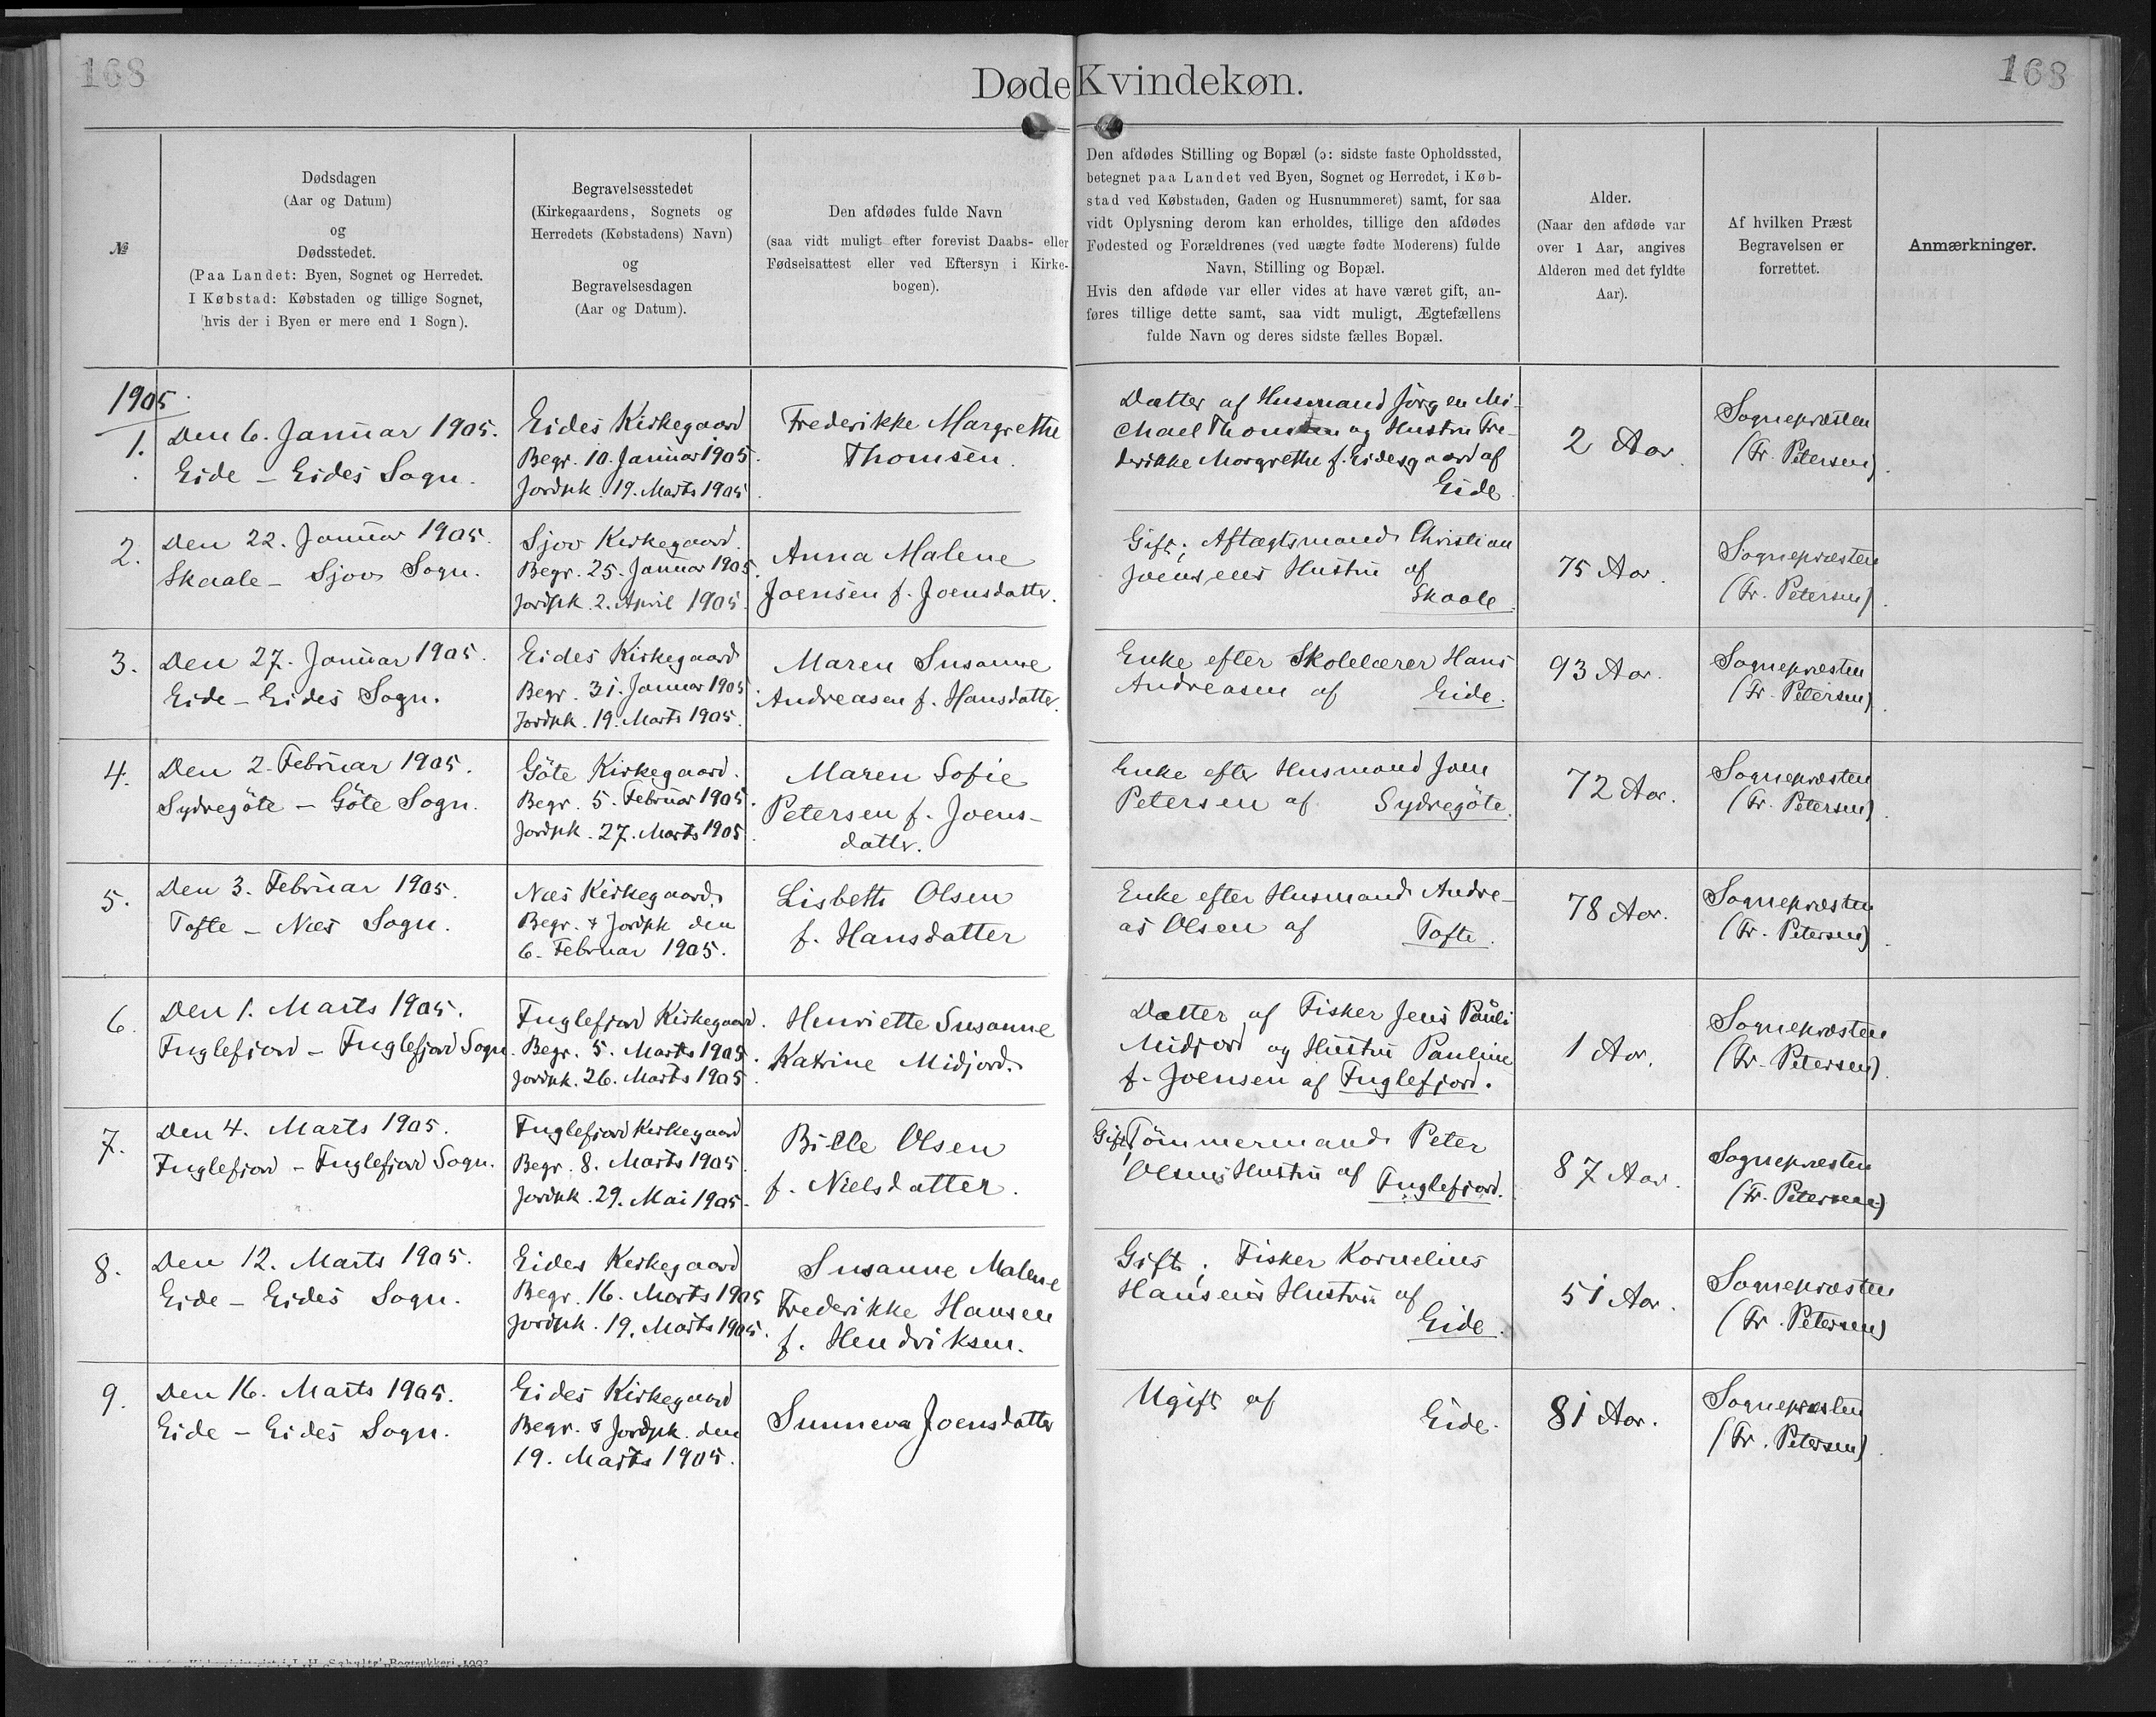 168
168
Døde Kvindekøn.
№
Dødsdagen
(Aar og Datum)
og
Dødsstedet.
(Paa Landet: Byen, Sognet og Herredet.
I Købstad: Købstaden og tillige Sognet,
hvis der i Byen er mere end 1 Sogn).
Begravelsesstedet
(Kirkegaardens, Sognets og
Herredets (Købstadens) Navn)
og
Begravelsesdagen
(Aar og Datum).
Den afdødes fulde Navn
(saa vidt muligt efter forevist Daabs- eller
Fødselsattest eller ved Eftersyn i Kirke-
bogen).
Den afdødes Stilling og Bopæl (ɔ: sidste faste Opholdssted,
betegnet paa Landet ved Byen, Sognet og Herredet, i Køb-
stad ved Købstaden, Gaden og Husnummeret) samt, for saa
vidt Oplysning derom kan erholdes, tillige den afdødes
Fødested og Forældrenes (ved uægte fødte Moderens) fulde
Navn, Stilling og Bopæl.
Hvis den afdøde var eller vides at have været gift, an-
føres tillige dette samt, saa vidt muligt, Ægtefællens
fulde Navn og deres sidste fælles Bopæl.
Alder.
(Naar den afdøde var
over 1 Aar, angives
Alderen med det fyldte
Aar).
Af hvilken Præst
Begravelsen er
forrettet.
Anmærkninger.
1905.
1.
Den 6. Januar 1905.
Eide – Eides Sogn.
Eides Kirkegaard
Begr. 10. Januar 1905.
Jordpk. 19. Marts 1905.
Frederikke Margrethe
Thomsen.
Datter af Husmand Jörgen Mi-
chael Thomsen og Hustru Fre-
derikke Margrethe f. Eidesgaard af
Eide.
2 Aar.
Sognepræsten
(Fr. Petersen).
2.
Den 22. Januar 1905.
Skaale – Sjovs Sogn.
Sjov Kirkegaard.
Begr. 25. Januar 1905.
Jordpk. 2. April 1905.
Anna Malene
Joensen f. Joensdatter.
Gift; Aftægtsmand Christian
Joensens Hustru af
Skaale.
75 Aar.
Sognepræsten
(Fr. Petersen).
3.
Den 27. Januar 1905.
Eide – Eides Sogn.
Eides Kirkegaard
Begr. 31. Januar 1905.
Jordpk. 19. Marts 1905.
Maren Susanne
Andreasen f. Hansdatter.
Enke efter Skolelærer Hans
Andreasen af Eide.
93 Aar.
Sognepræsten
(Fr. Petersen).
4.
Den 2. Februar 1905.
Sydregöte – Göte Sogn.
Göte Kirkegaard.
Begr. 5. Februar 1905.
Jordpk. 27. Marts 1905.
Maren Sofie
Petersen f. Joens-
datter.
Enke efter Husmand Joen
Petersen af Sydregöte.
72 Aar.
Sognepræsten
(Fr. Petersen).
5.
Den 3. Februar 1905.
Tofte – Næs Sogn.
Næs Kirkegaard.
Begr. & Jordpk den
6. Februar 1905.
Lisbeth Olsen
f. Hansdatter
Enke efter Husmand Andre-
as Olsen af Tofte.
78 Aar.
Sognepræsten
(Fr. Petersen).
6.
Den 1. Marts 1905.
Fuglefjord – Fuglefjord Sogn.
Fuglefjord Kirkegaard.
Begr. 5. Marts 1905.
Jordpk. 26. Marts 1905.
Henriette Susanne
Katrine Midjord.
Datter af Fisker Jens Pauli
Midjord og Hustru Pauline
f. Joensen af Fuglefjord.
1 Aar.
Sognepræsten
(Fr. Petersen).
7.
Den 4. Marts 1905.
Fuglefjord – Fuglefjord Sogn.
Fuglefjord Kirkegaard
Begr. 8. Marts 1905.
Jordpk. 29. Mai 1905.
Bille Olsen
f. Nielsdatter.
Gift; Tömmermand Peter
Olsens Hustru af Fuglefjord.
87 Aar.
Sognepræsten
(Fr. Petersen)
8.
Den 12. Marts 1905.
Eide – Eides Sogn.
Eides Kirkegaard
Begr. 16. Marts 1905
Jordpk. 19. Marts 1905.
Susanne Malene
Frederikke Hansen
f. Hendriksen.
Gift; Fisker Kornelius
Hansens Hustru af
Eide.
51 Aar.
Sognepræsten
(Fr. Petersen)
9.
Den 16. Marts 1905.
Eide – Eides Sogn.
Eides Kirkegaard
Begr. & Jordpk. den
19. Marts 1905.
Sunneva Joensdatter
Ugift af Eide.
81 Aar.
Sognepræsten
(Fr. Petersen).